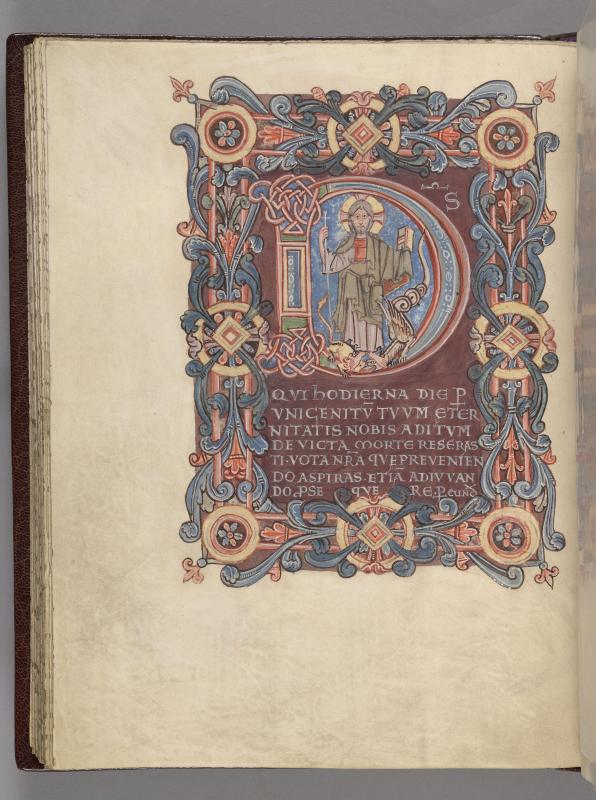 D S̄
QVI hODIERNA DIE P̲
VNIGENITV̄ TVVM ETER
NITATIS NOBIS ADITVM
DE VICTA MORTE RESERAS
TI·VOTA NR̄A QVE PREVENIEN
DO ASPIRAS·ETIĀ ADIVVAN
DO·PSE QVE RE·P̲ eund̄